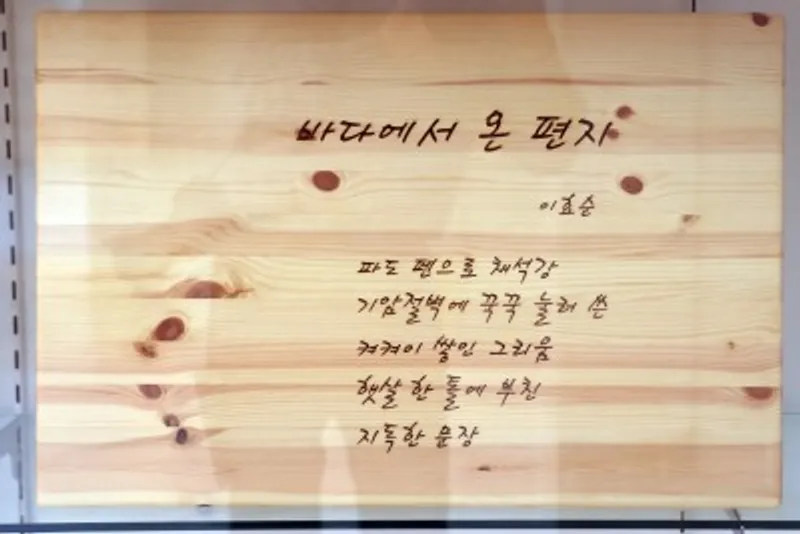 바다에서 온 편지
이효순
파도 펜으로 채석강
기암절벽에 꾹꾹 눌러 쓴
켜켜이 쌓인 그리움
햇살 한 톨에 부친
지독한 문장